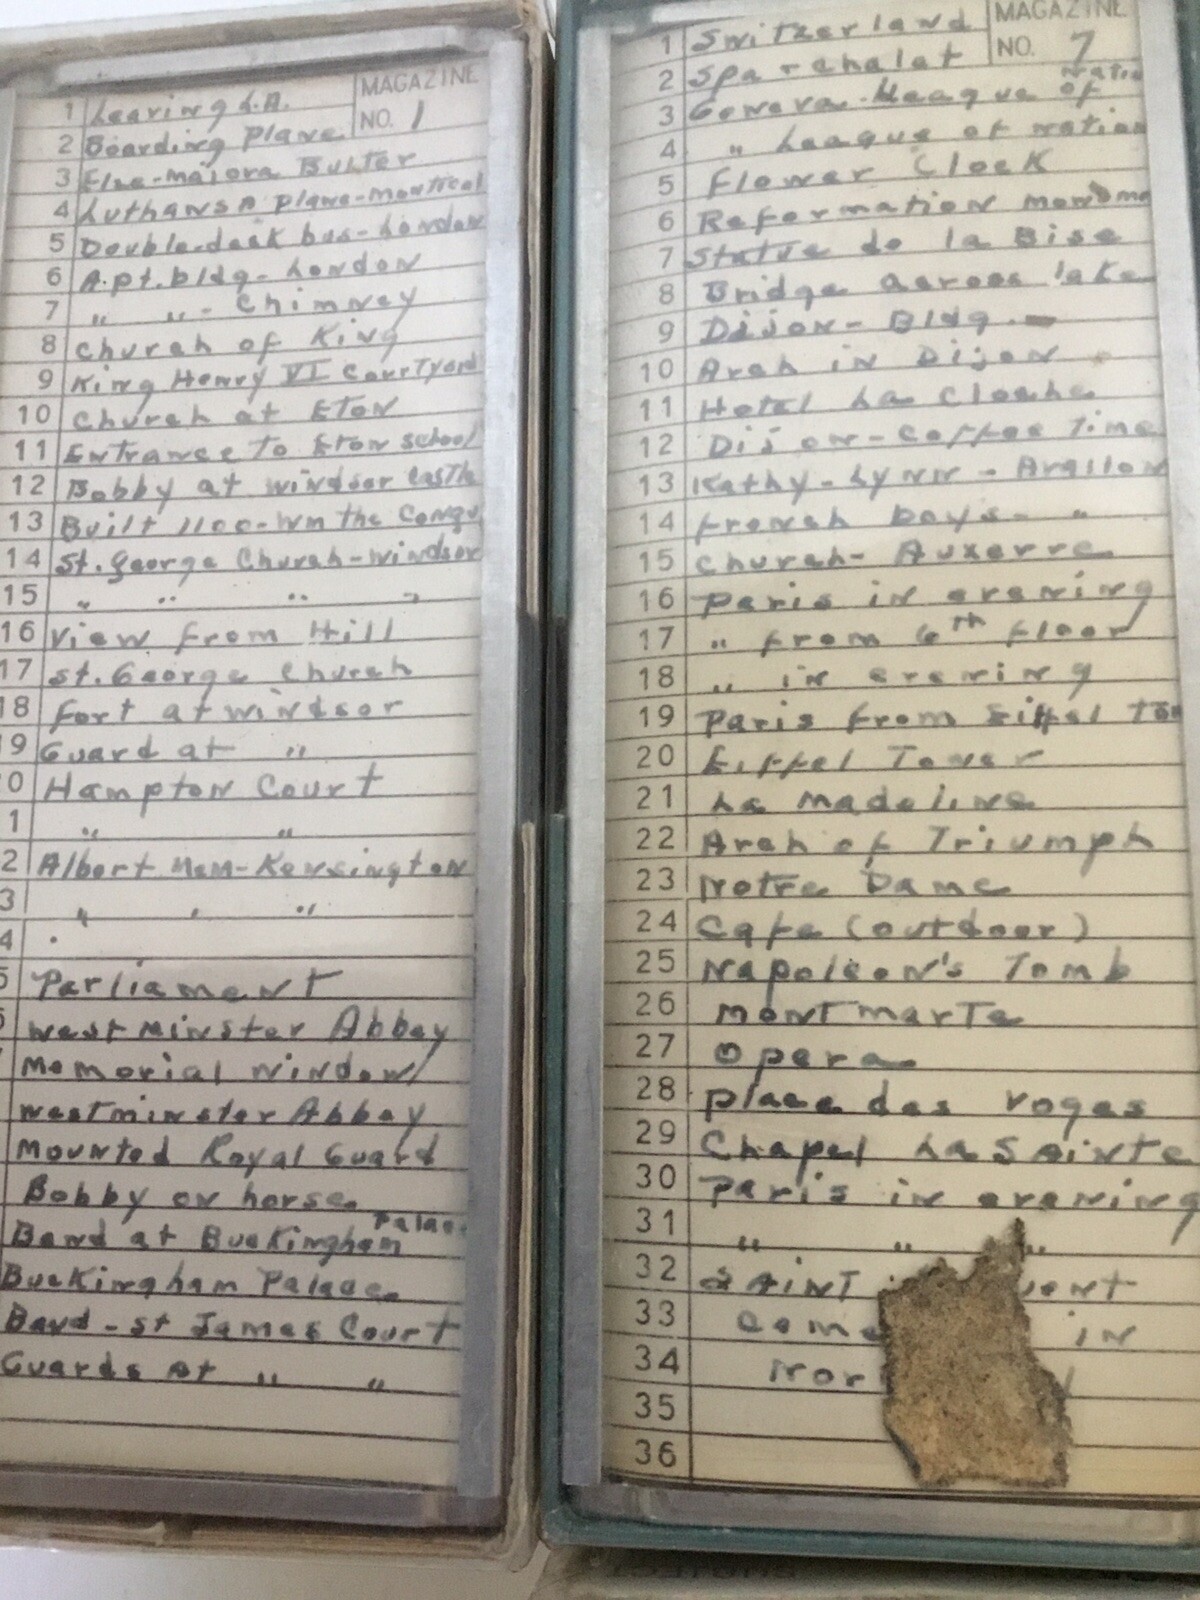 MAGAZINE
NO. 1
1 Leaving L.A.
2 Boarding Plane
3 Else-majora Butter
4 Luthansa plane-montreal
5 Double-deck bus-London
6 A.pt. bldg- London
7 " " - Chimney
8 Church of King
9 King Henry VI Courtyard
10 Church at Eton
11 Entrance To Eton School
12 Bobby at windsor Castle
13 Built 1100-Wm the Conqu
14 St. George Church-windsor
15 " " " "
16 View from Hill
17 St. George Church
18 Fort at windsor
9 Guard at "
0 Hampton Court
1 " "
2 Albert Mem-Kensington
3 " ' "
4
5 Parliament
West minster Abbey
Memorial Window
Westminster Abbey
Mounted Royal Guard
Bobby on horse
Band at Buckingham Palace
Buckingham Palace
Band - St James Court
Guards at " "
MAGAZINE
NO. 7
1 Switzerland
2 Spa - chalat
3 Geneva - League of natio
4 " League of nation
5 Flower Clock
6 Reformation monume
7 Statue de la Bise
8 Bridge across lake
9 Dijon - Bldg.
10 Arch in Dijon
11 Hotel La Cloche
12 Dijon - Coffee Time
13 Kathy - Lynn - Avallon
14 French boys - "
15 Church - Auxerre
16 Paris in evening
17 " from 6th floor
18 " in evening
19 Paris from Eiffel Tow
20 Eiffel Tower
21 La Madeline
22 Arch of Triumph
23 Notre Dame
24 Cafe (outdoor)
25 Napoleon's Tomb
26 Montmarte
27 Opera
28 Place des Voges
29 Chapel La Sainte
30 Paris in evening
31 " " "
32 Saint
33 Ceme in
34 Nor
35
36